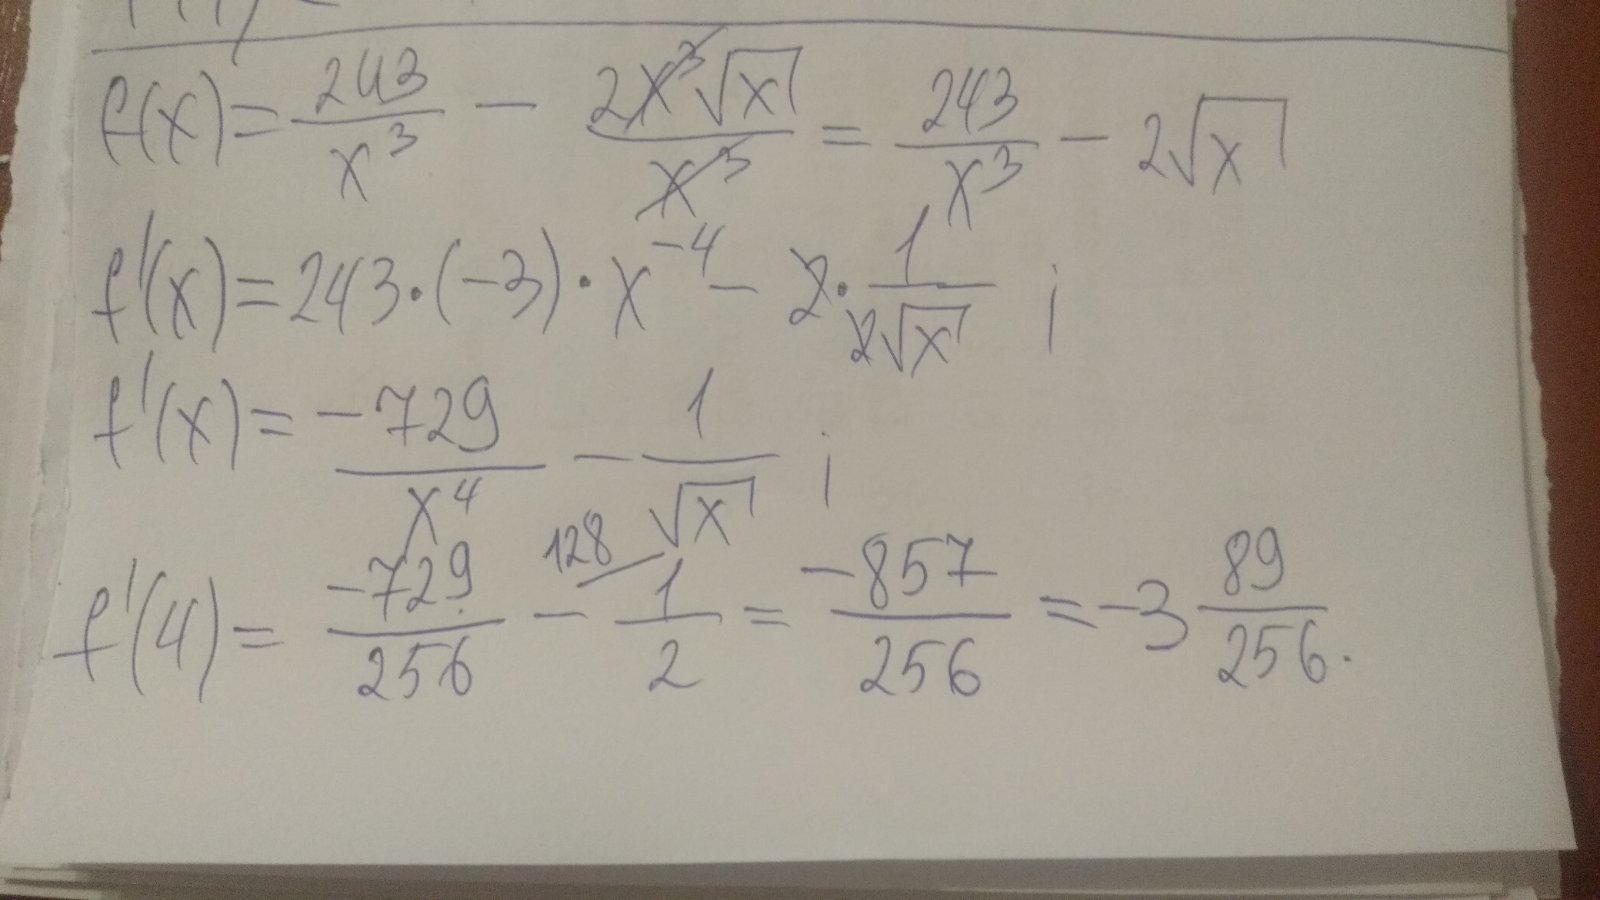 f(x) = 243/x³ - 2x³√x/x³ = 243/x³ - 2√x
f'(x) = 243·(-3)·x⁻⁴ - 2·1/2√x ;
f'(x) = -729/x⁴ - 1/√x ;
f'(4) = -729/256 - 128/ 1/2 = -857/256 = -3 89/256.